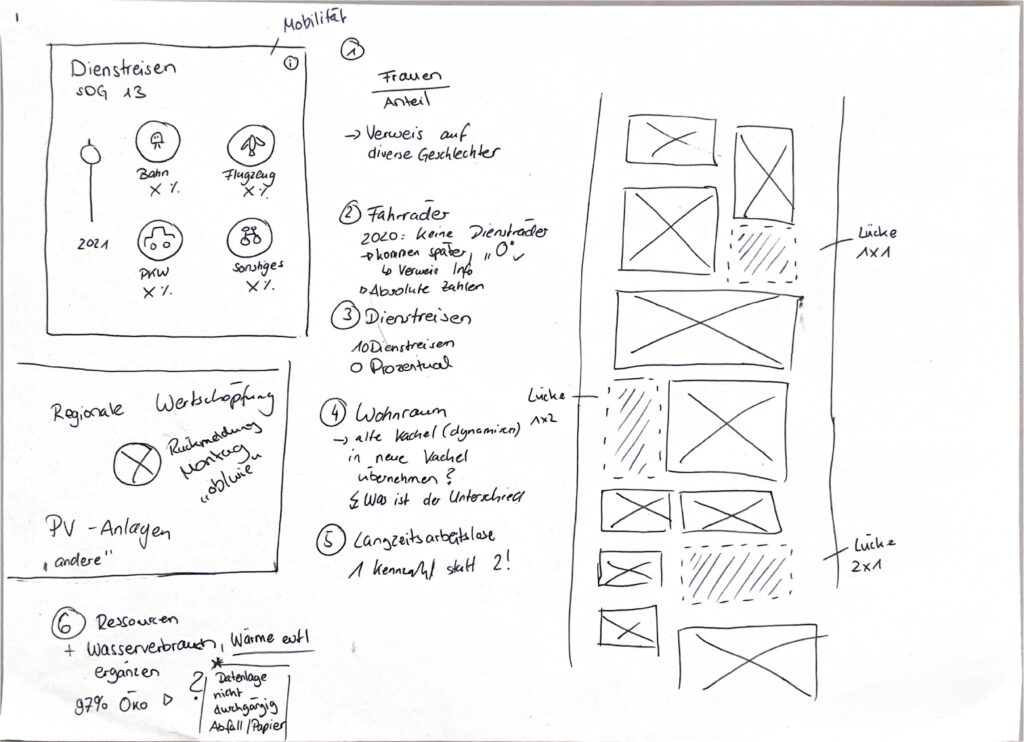 Mobilität
Dienstreisen
SDG 13
i
Bahn
X %
Flugzeug
X %
2021
PKW
X %
Sonstiges
X %
Regionale Wertschöpfung
Rückmeldung
Montag
"ob/wie"
PV-Anlagen
"andere"
6 Ressourcen
+ Wasserverbrauch, Wärme evtl
ergänzen
97% Öko ?
* Datenlage
nicht
durchgängig
Abfall/Papier
1
Frauen
Anteil
→ Verweis auf
diverse Geschlechter
2 Fahrräder
2020: keine Diensträder
→ kommen später, "0"
↳ Verweis Info
Absolute Zahlen
3 Dienstreisen
10 Dienstreisen
0 Prozentual
4 Wohnraum
→ alte Kachel (dynamixn)
in neue Kachel
übernehmen?
Was ist der Unterschied
5 Langzeitsarbeitslose
1 Kennzahl statt 2!
Lücke
1x1
Lücke
1x2
Lücke
2x1